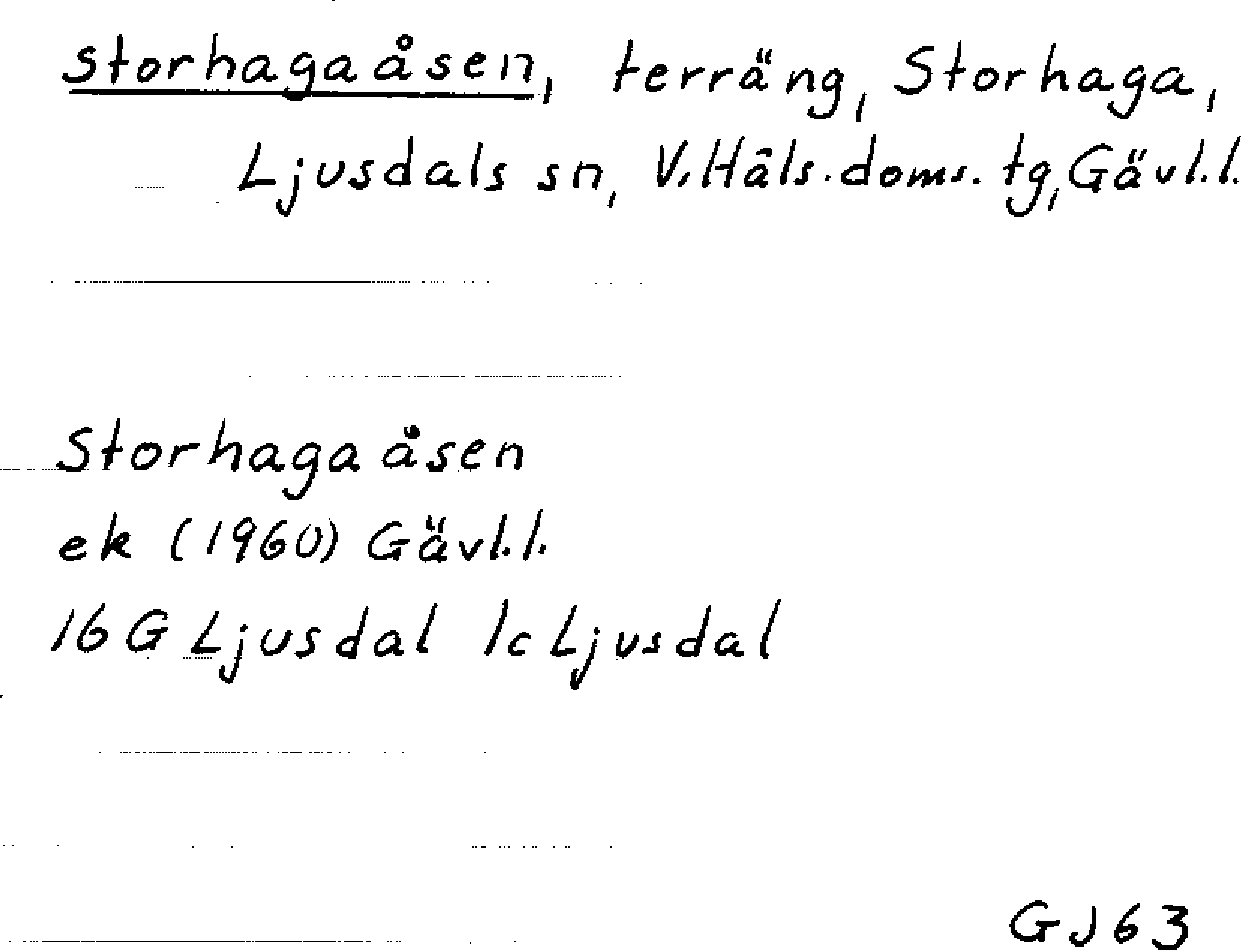 Storhagaåsen, terräng, Storhaga,
Ljusdals sn, V. Häls. doms. tg, Gävl.l.
Storhagaåsen
ek (1960) Gävl.l.
16 G Ljusdal 1c Ljusdal
GJ63